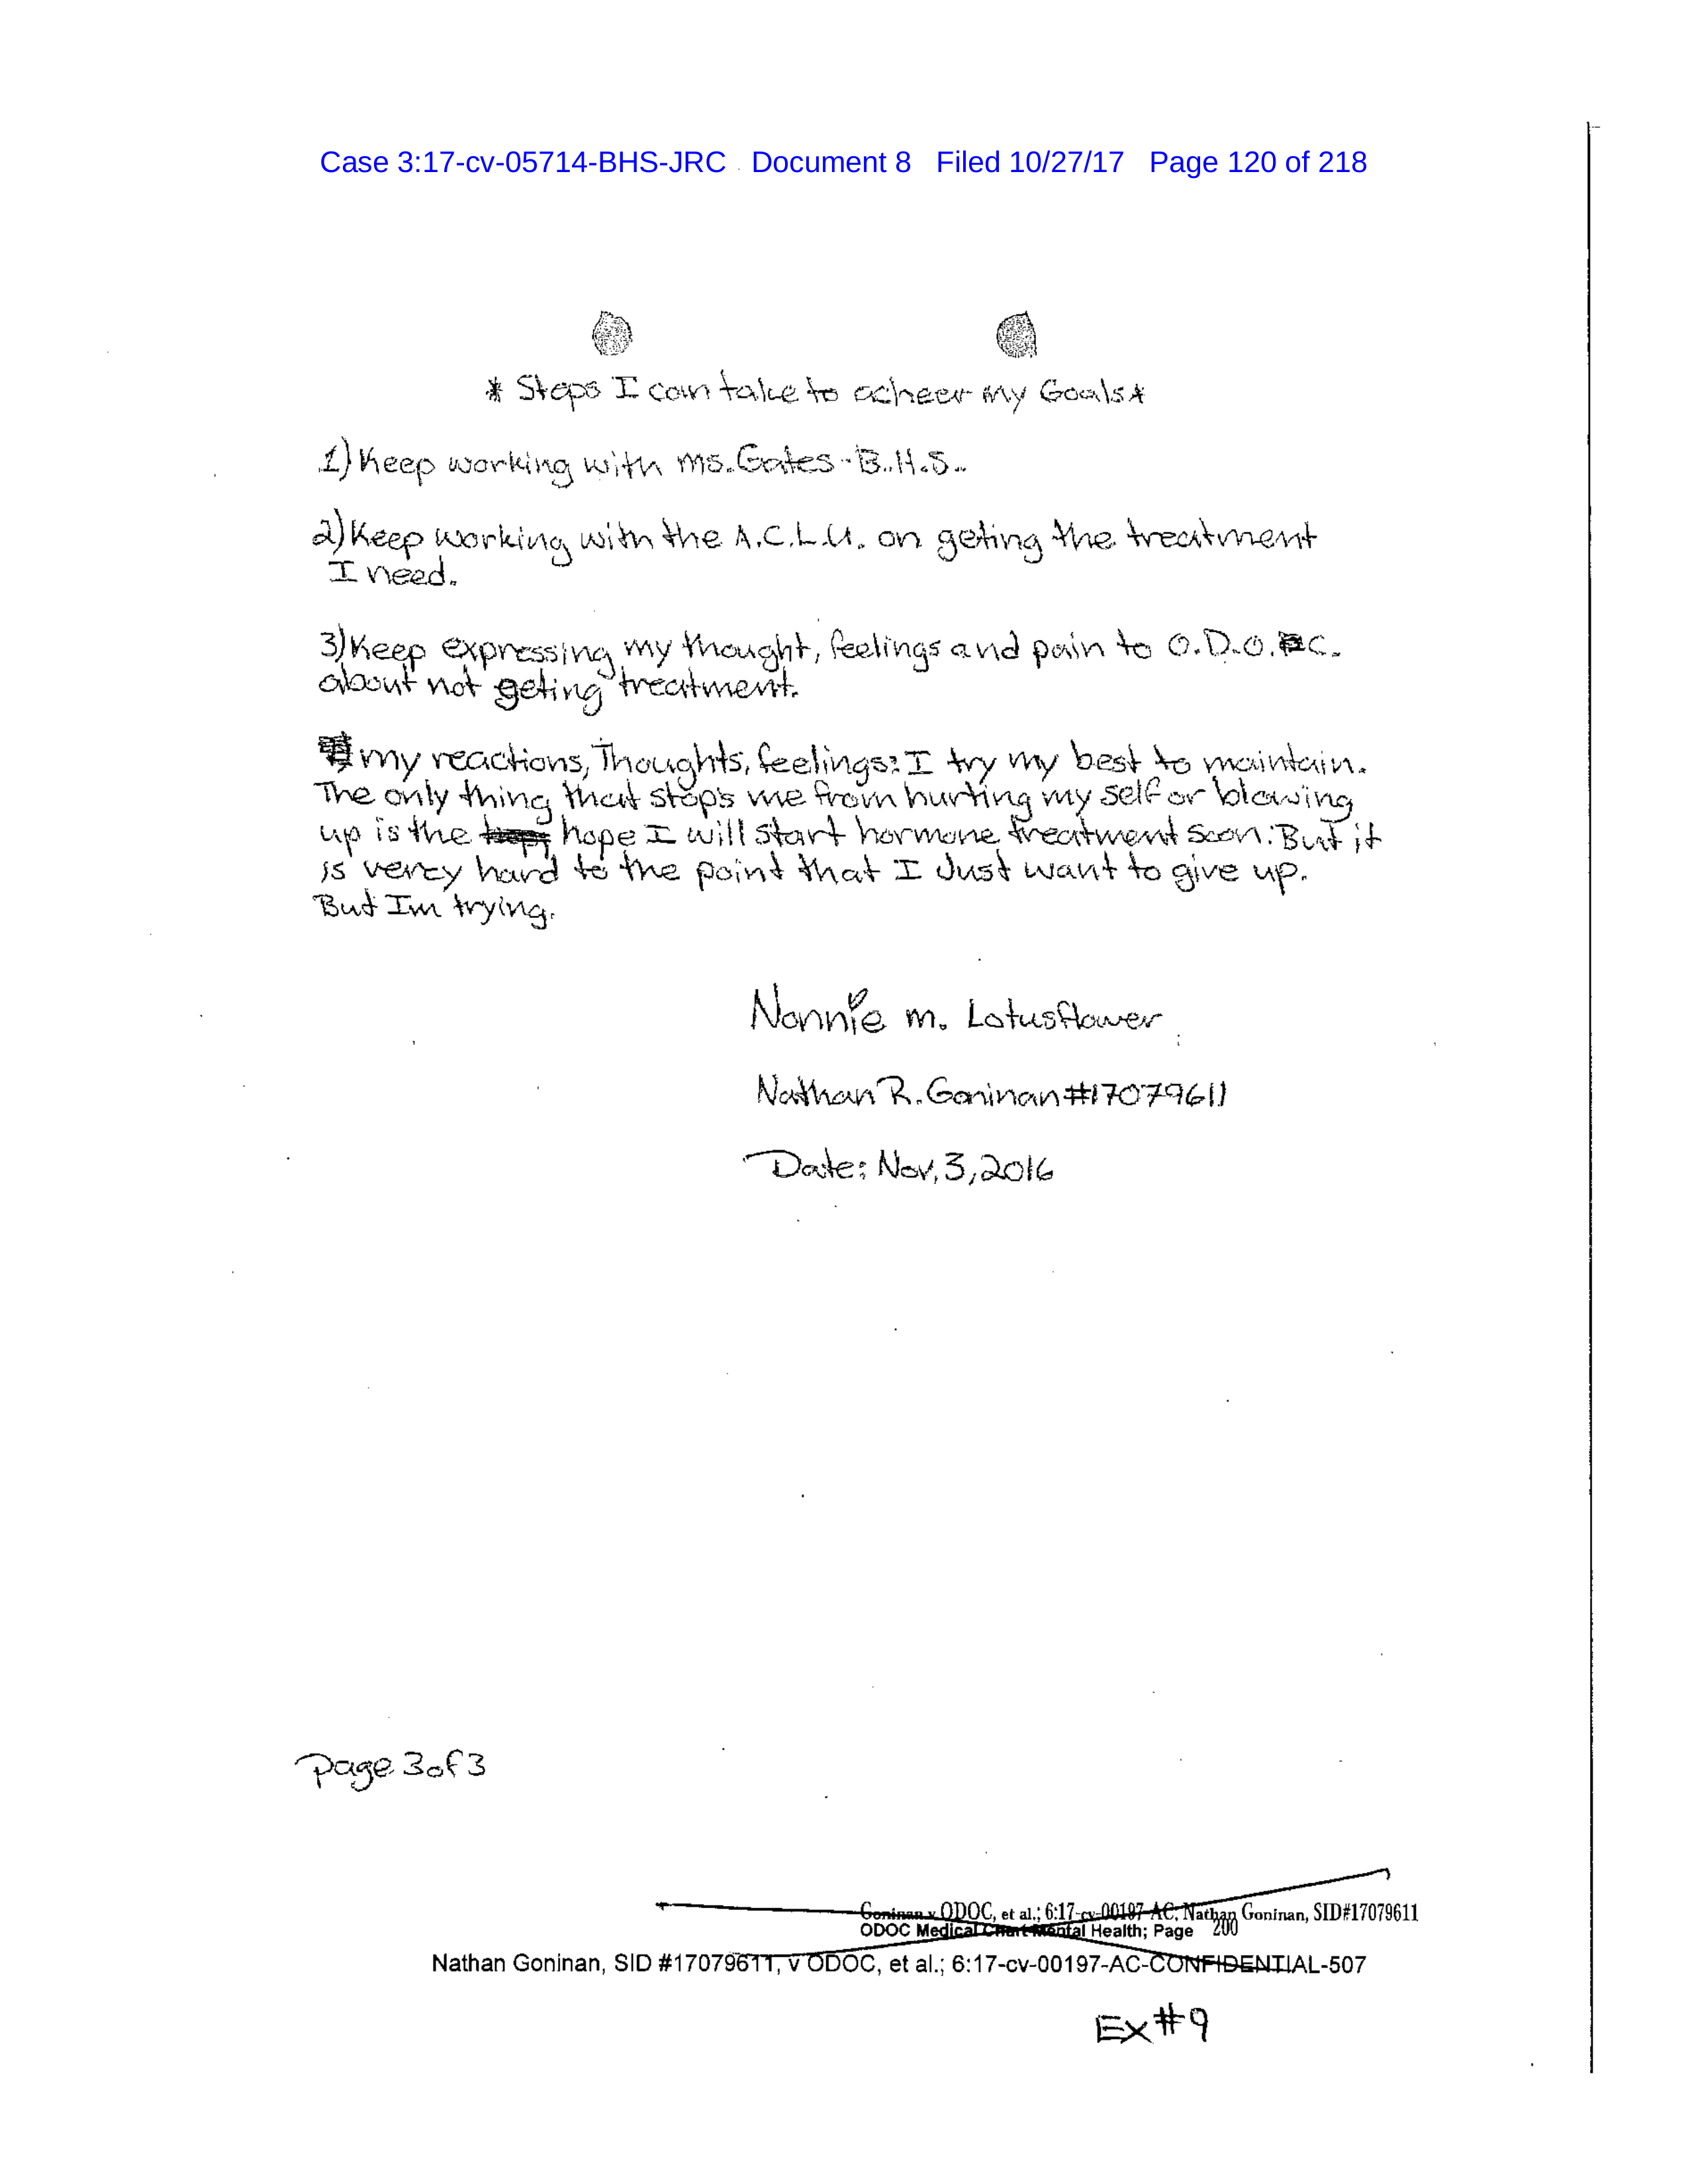 Case 3:17-cv-05714-BHS-JRC Document 8 Filed 10/27/17 Page 120 of 218
* Steps I can take to acheer my Goals *
1) Keep working with ms. Gates - B.H.S.
2) Keep working with the A.C.L.U. on geting the treatment
I need.
3) Keep expressing my thought, feelings and pain to O.D.O.C.
about not geting treatment.
my reactions, Thoughts, feelings: I try my best to maintain.
The only thing that stops me from hurting my self or blowing
up is the hope I will start hormone treatment soon. But it
is verey hard to the point that I Just want to give up.
But Im trying.
Nonnie m. Lotusflower
Nathan R. Goninan #17079611
Date: Nov, 3, 2016
Page 3 of 3
Goninan v ODOC, et al.; 6:17-cv-00197-AC; Nathan Goninan, SID#17079611
ODOC Medical Chart Mental Health; Page 200
Nathan Goninan, SID #17079611, v ODOC, et al.; 6:17-cv-00197-AC-CONFIDENTIAL-507
Ex #9